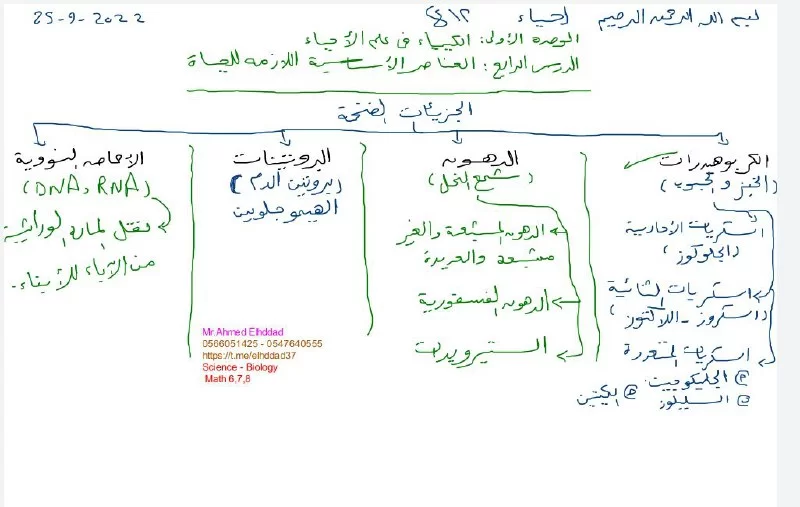 بسم الله الرحمن الرحيم
أحياء
25-9-2022
الوحدة الأولى: الكيمياء في علم الأحياء
الدرس الرابع: العناصر الأساسية اللازمة للحياة
الجزيئات الضخمة
الكربوهيدرات
(الخبز والحبوب)
السكريات الأحادية
(الجلوكوز)
السكريات الثنائية
(السكروز - اللاكتوز)
السكريات المتعددة
الجليكوجين
السليلوز
الكيتين
الدهون
(شمع النحل)
الدهون المشبعة والغير
مشبعة والعديدة
الدهون الفسفورية
الستيرويدات
البروتينات
(بروتين الدم)
الهيموجلوبين
الأحماض النووية
(DNA, RNA)
تنقل المادة الوراثية
من الآباء للأبناء.
Mr.Ahmed Elhddad
0566051425 - 0547640555
https://t.me/elhddad37
Science - Biology
Math 6,7,8